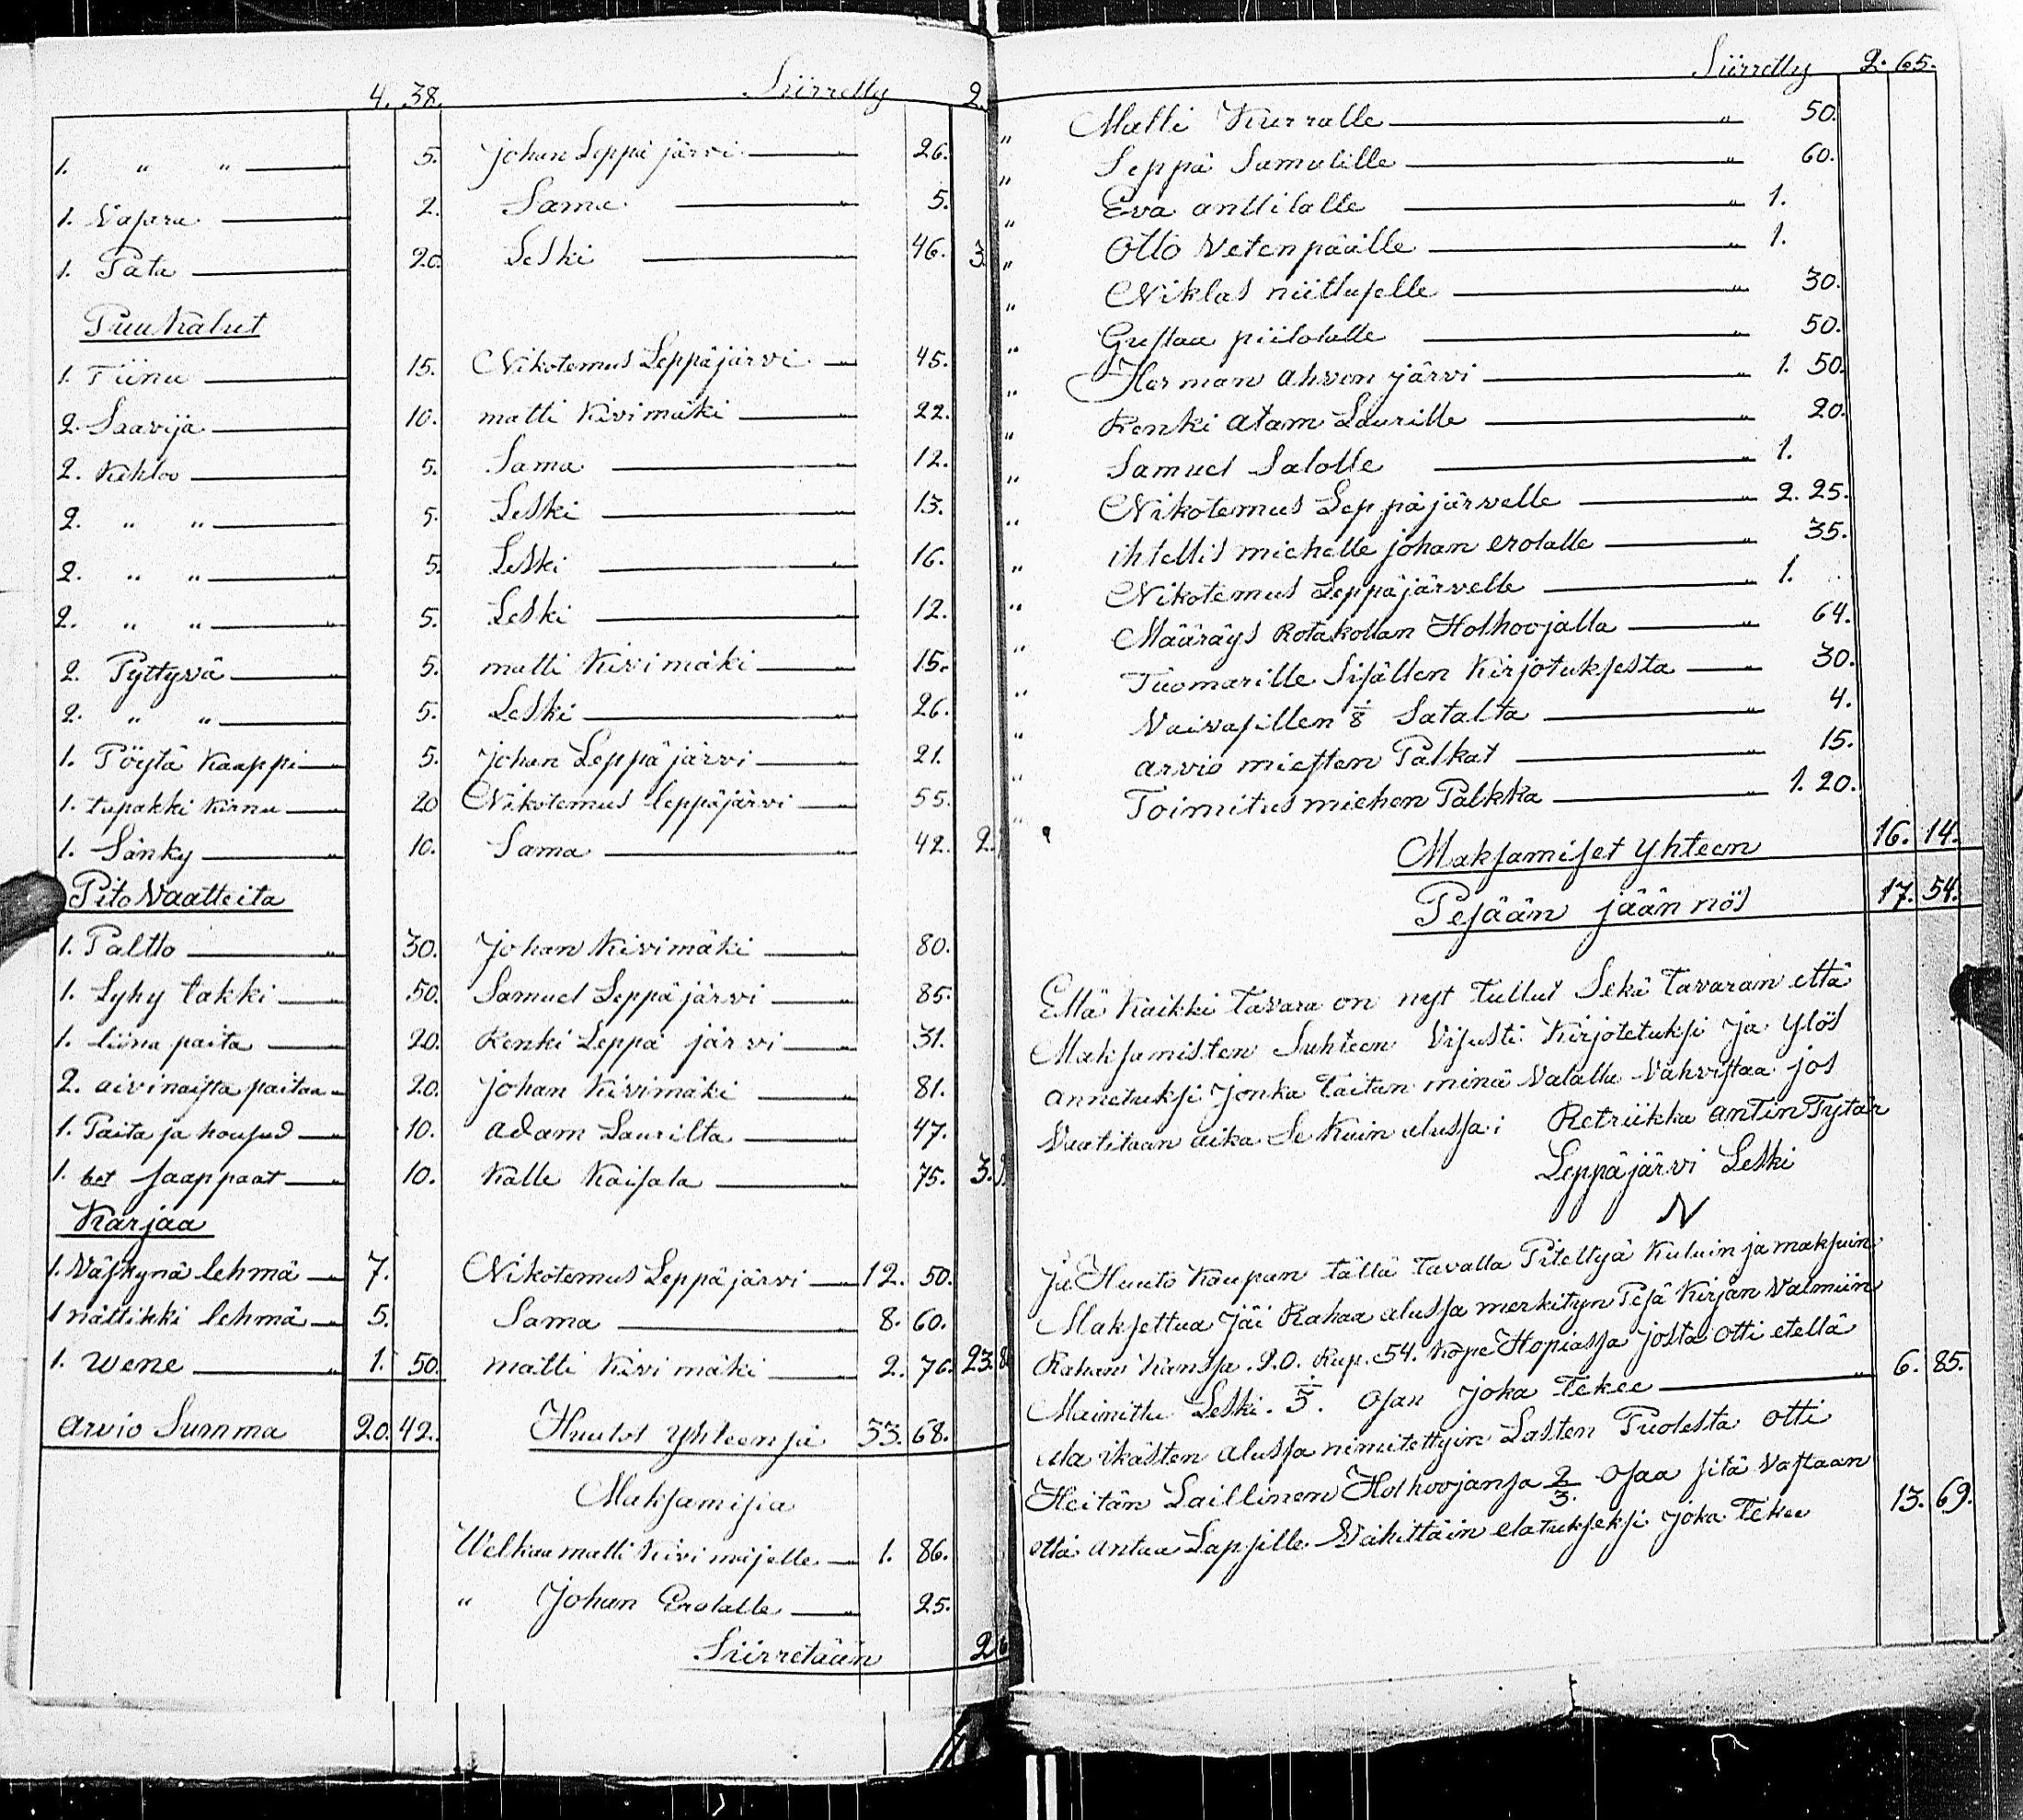 4. 38. Siirretty 2.
1. " " — 5. Johan Leppäjärvi — 26.
1. Vasara — 2. Sama — 5.
1. Pata — 20. Leski — 46. 3.
Puu Kalut
1. Tiinu — 15. Nikotemus Leppäjärvi — 45.
2. Saavija — 10. matti Kivimäki — 22.
2. Kehloo — 5. Sama — 12.
2. " " — 5. Leski — 13.
2. " " — 5. Leski — 16.
2. " " — 5. Leski — 12.
2. Pyttyvä — 5. matti Kivimäki — 15.
2. " " — 5. Leski — 26.
1. Pöytä Kaappi — 5. Johan Leppäjärvi — 21.
1. tupakki Kirnu — 20 Nikotemus leppäjärvi — 55.
1. Sänky — 10. Sama — 42. 2.
Pito Vaatteita
1. Paltto — 30. Johan Kivimäki — 80.
1. Lyhy takki — 50. Samuel Leppäjärvi — 85.
1. liina paita — 20. Renki Leppä järvi — 31.
2. aivinaista paitaa — 20. Johan Kivimäki — 81.
1. Paita ja housud — 10. Adam Laurilta — 47.
1. bet saappaat — 10. Kalle Kaisala — 75. 3.
Karjaa
1. Väskynä lehmä — 7. Nikotemus Leppäjärvi — 12. 50.
1 nättikki lehmä — 5. Sama — 8. 60.
1. Wene — 1. 50. matti Kivi mäki — 2. 76. 23. 8
Arvio Summa 20. 42. Huutot Yhteensä 33. 68.
Maksamisia
Welkaa matti Kivi mäjelle — 1. 86.
" Johan Erolalle — 25.
Siirretään 2 6
Siirretty 2. 65.
" Matti Kurralle — 50.
" Seppä Samulille — 60.
" Eva anttilalle — 1.
" Otto Vetenpäälle — 1.
" Niklas niittuselle — 30.
" Gustaa piilolalle — 50.
" Herman ahvenjärvi — 1. 50.
" Renki Atam Laurille — 20.
" Samuel Salolle — 1.
" Nikotemus Leppäjärvelle — 2. 25.
" ihtellis miehelle johan erolalle — 35.
" Nikotemus Leppäjärvelle — 1.
" Määräys Rotakollan Holhoojalla — 64.
" Tuomarille Sisällen Kirjotuksesta — 30.
" Vaivasillen 1/8 Satalta — 4.
" arvio miesten Palkat — 15.
" Toimitus miehen Palkka — 1. 20.
Maksamiset Yhteen 16. 14.
Pesään jään nös 17. 54.
Että Kaikki tavara on nyt tullut Sekä tavaran että
Maksamisten Suhteen Visusti Kirjotetuksi ja Ylös
annetuksi jonka taitan minä Valalla Vahvistaa jos
Vaatitaan aika Se Kuin alussa: Retriikka antin Tytär
Leppäjärvi Leski
N
Ja Huuto Kaupan tällä tavalla Piteltyä Kuluin ja maksuin
Maksettua Jäi Rahaa alussa merkityn Pesä Kirjan Valmiin
Rahan Kanssa. 20. Rup. 54. Kope Hopiassa josta otti etellä
Mainittu Leski. 1/3. Osan joka tekee — 6. 85.
Ala ikäisten alussa nimitettyin Lasten Puolesta otti
Heitän Laillinen Holhoojansa 2/3. Osaa sitä Vastaan
että antaa Lapsille Vähittäin elatukseksi joka Tekee 13. 69.